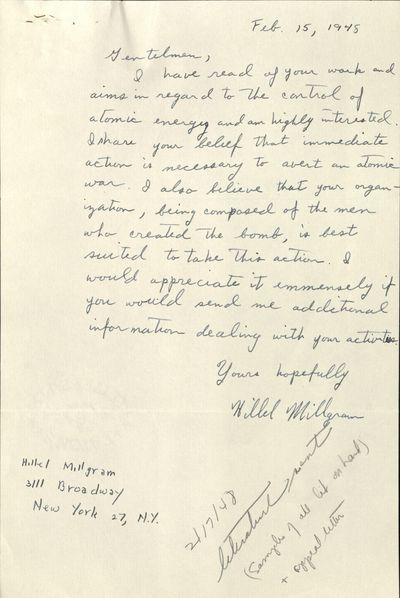 Feb. 15, 1948
Gentelmen,
I have read of your work and
aims in regard to the control of
atomic energy and am highly interested.
I share your belief that immediate
action is necessary to avert an atomic
war. I also believe that your organ-
ization, being composed of the men
who created the bomb, is best
suited to take this action. I
would appreciate it immensely if
you would send me additional
information dealing with your activities.
Yours hopefully
Hillel Millgram
Hillel Millgram
3111 Broadway
New York 27, N.Y.
2/17/48
literature sent
(sample of all lit on hand)
+ appeal letter